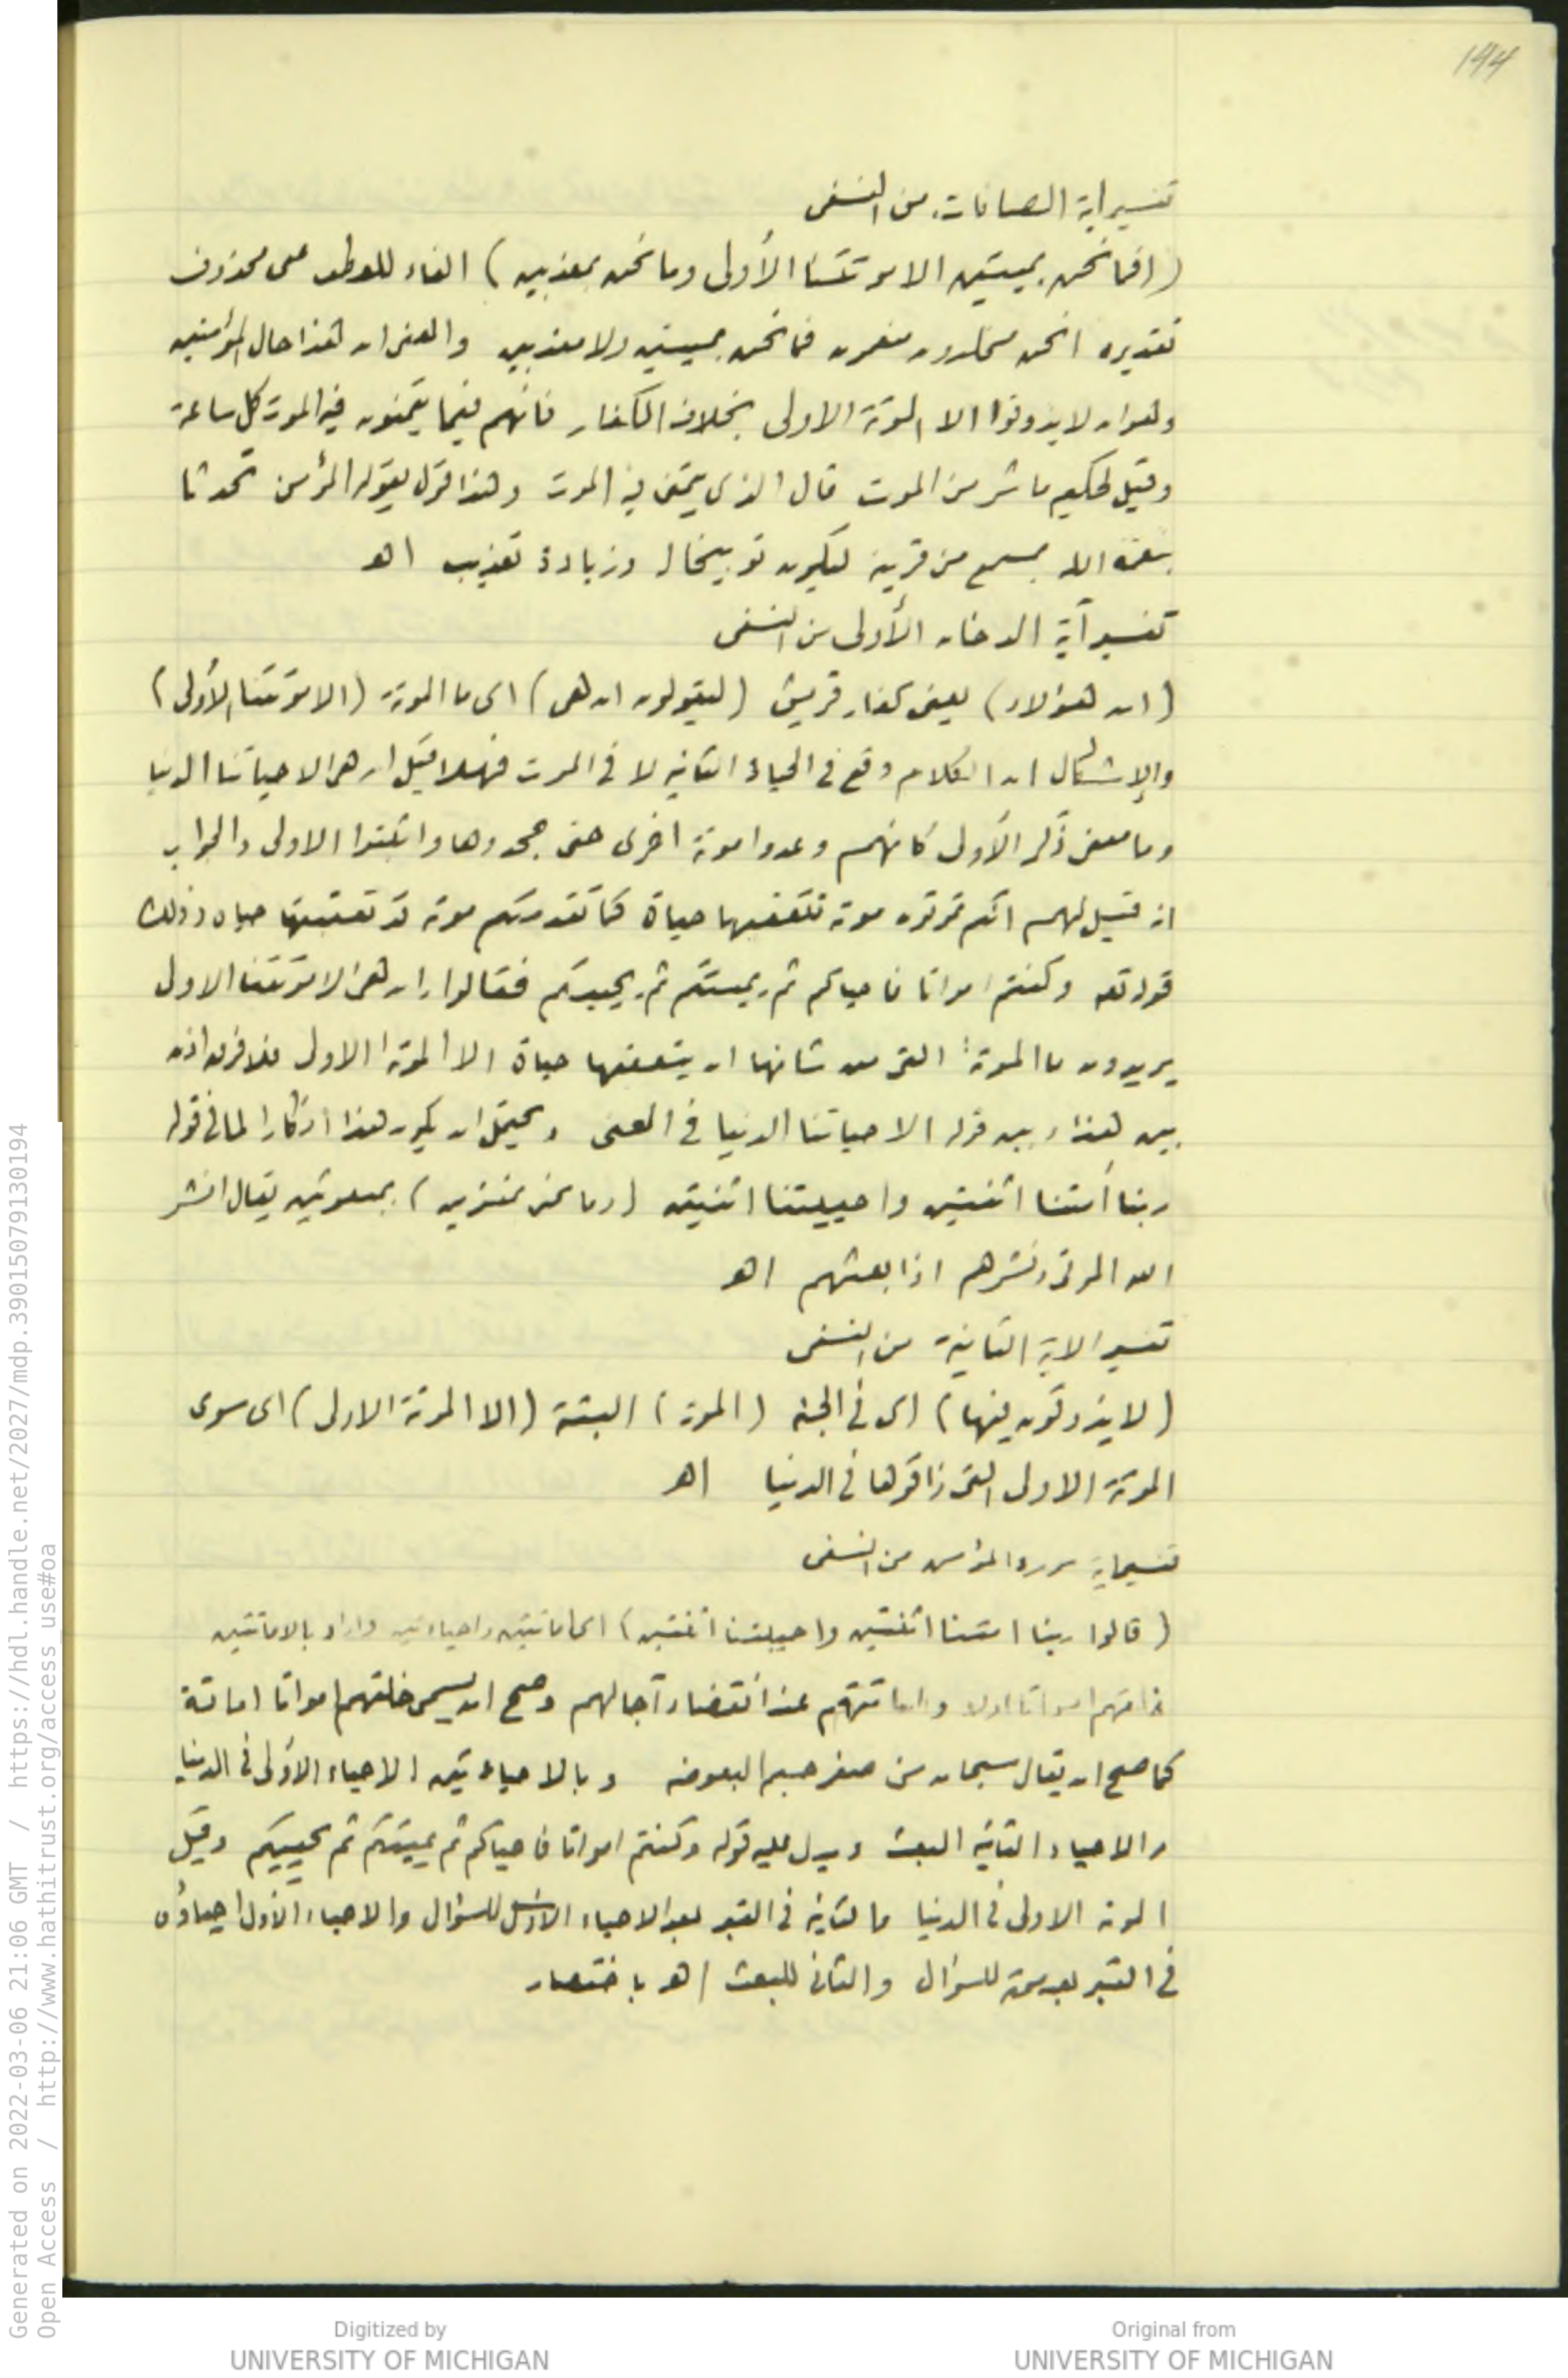 144
تفسير آية الصافات من النسفى
(افما نحن بميتين الا موتتنا الأولى وما نحن بمعذبين) الفاء للعطف على محذوف
تقديره انحن مخلدون منعمون فما نحن بميتين ولا معذبين والمعنى ان هذا حال المؤمنين
وهو ان لا يذوقوا الا الموتة الاولى بخلاف الكفار فانهم فيما يتمنون فيه الموت كل ساعة
وقيل لحكيم ما شر من الموت قال الذى يتمنى فيه الموت وهذا قول يقوله المؤمن تحدثا
بنعمة الله بمسمع من قرينه ليكون توبيخا له وزيادة تعذيب اهـ
تفسير آية الدخان الأولى من النسفى
(ان هؤلاء) يعنى كفار قريش (ليقولون ان هى) اى ما الموتة (الا موتتنا الأولى)
والإشكال ان الكلام وقع فى الحياة الثانية لا فى الموت فهلا قيل ان هى الا حياتنا الدنيا
وما معنى ذكر الأولى كأنهم وعدوا موتة اخرى حتى جحدوها واثبتوا الاولى والجواب
انه قيل لهم انكم تموتون موتة تتعقبها حياة كما تقدمتكم موتة قد تعقبتها حياة وذلك
قوله تعه وكنتم امواتا فاحياكم ثم يميتكم ثم يحييكم فقالوا ان هى الا موتتنا الاولى
يريدون ما الموتة التى من شأنها ان يتعقبها حياة الا الموتة الاولى فلا فرق اذن
بين هذا وبين قوله الا حياتنا الدنيا فى المعنى ويحتمل ان يكون هذا انكارا لما فى قوله
ربنا أمتنا اثنتين واحييتنا اثنتين (وما نحن بمنشرين) بمبعوثين يقال انشر
الله الموتى ونشرهم اذا بعثهم اهـ
تفسير الاية الثانية من النسفى
(لا يذوقون فيها) اى فى الجنة (الموت) البتة (الا الموتة الاولى) اى سوى
الموتة الاولى التى ذاقوها فى الدنيا اهـ
تفسير آية سورة المؤمن من النسفى
(قالوا ربنا امتنا اثنتين واحييتنا اثنتين) اى اماتتين واحياءتين واراد بالاماتتين
خلقهم امواتا اولا واماتتهم عند انقضاء آجالهم وصح ان يسمى خلقهم امواتا اماتة
كما صح ان يقال سبحان من صغر جسم البعوضة وبالاحياءتين الاحياء الأولى فى الدنيا
والاحياء الثانية البعث ويدل عليه قوله وكنتم امواتا فاحياكم ثم يميتكم ثم يحييكم وقيل
الموتة الاولى فى الدنيا والثانية فى القبر بعد الاحياء الاول للسؤال والاحياء الأول احياؤه
فى القبر بعد موته للسؤال والثانى للبعث اهـ باختصار
Generated on 2022-03-06 21:06 GMT / https://hdl.handle.net/2027/mdp.39015079130194
Open Access / http://www.hathitrust.org/access_use#oa
Digitized by
UNIVERSITY OF MICHIGAN
Original from
UNIVERSITY OF MICHIGAN